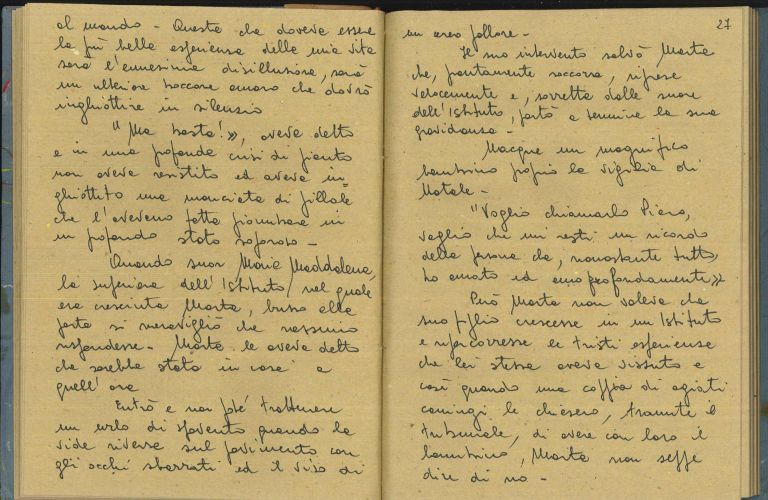 al mondo - Questa che doveva essere
la più bella esperienza della mia vita
sarà l'ennesima disillusione, sarà
un ulteriore boccone amaro che dovrò
inghiottire in silenzio
"Ma basta!», aveva detto
e in una profonda crisi di pianto
non aveva resistito ed aveva in=
ghiottito una manciata di pillole
che l'avevano fatta piombare in
un profondo stato soporoso -
Quando suor Maria Maddalena,
la superiora dell'Istituto nel quale
era cresciuta Marta, bussò alla
porta si meravigliò che nessuno
rispondesse - Marta le aveva detto
che sarebbe stata in casa a
quell'ora
Entrò e non poté trattenere
un urlo di spavento quando la
vide riversa sul pavimento con
gli occhi sbarrati ed il viso di
27
un cereo pallore -
Il suo intervento salvò Marta
che, prontamente soccorsa, si riprese
velocemente e, sorretta dalle suore
dell'Istituto, portò a termine la sua
gravidanza -
Nacque un magnifico
bambino proprio la vigilia di
Natale -
"Voglio chiamarlo Piero,
voglio che mi resti un ricordo
della persona che, nonostante tutto,
ho amato ed amo profondamente»
Però Marta non voleva che
suo figlio crescesse in un Istituto
e ripercorresse le tristi esperienze
che lei stessa aveva vissuto e
così quando una coppia di agiati
coniugi le chiesero, tramite il
tribunale, di avere con loro il
bambino, Marta non seppe
dire di no -